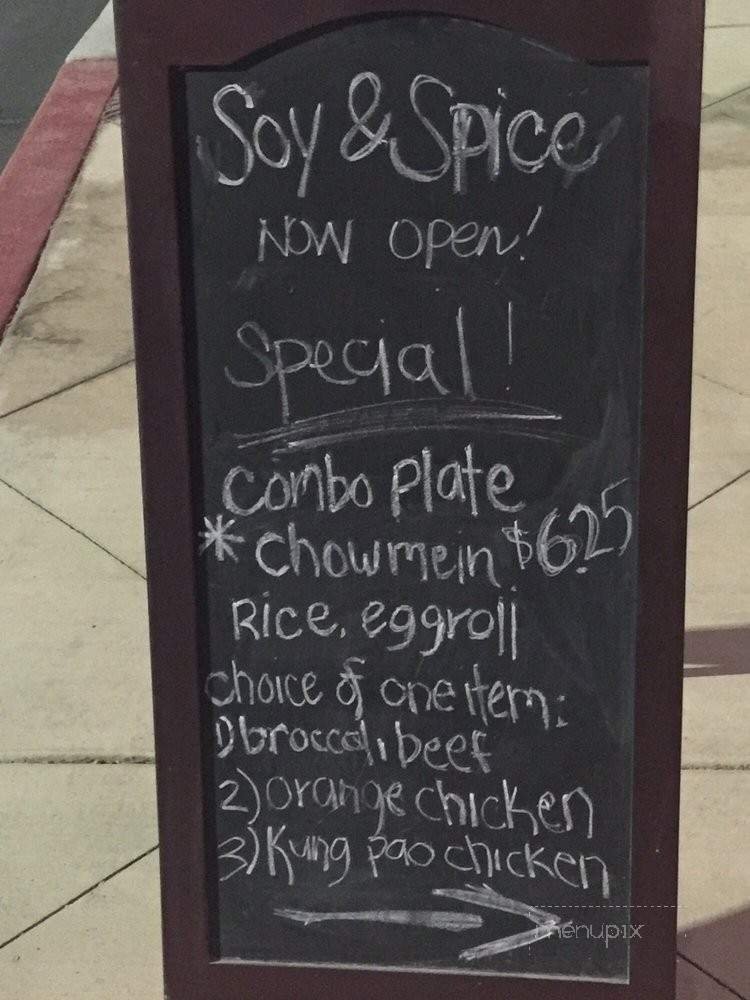 Soy & Spice
NOW OPEN!
Special!
Combo Plate
* Chowmein $6.25
Rice, eggroll
choice of one item:
1) broccoli beef
2) orange chicken
3) Kung pao chicken
menupix